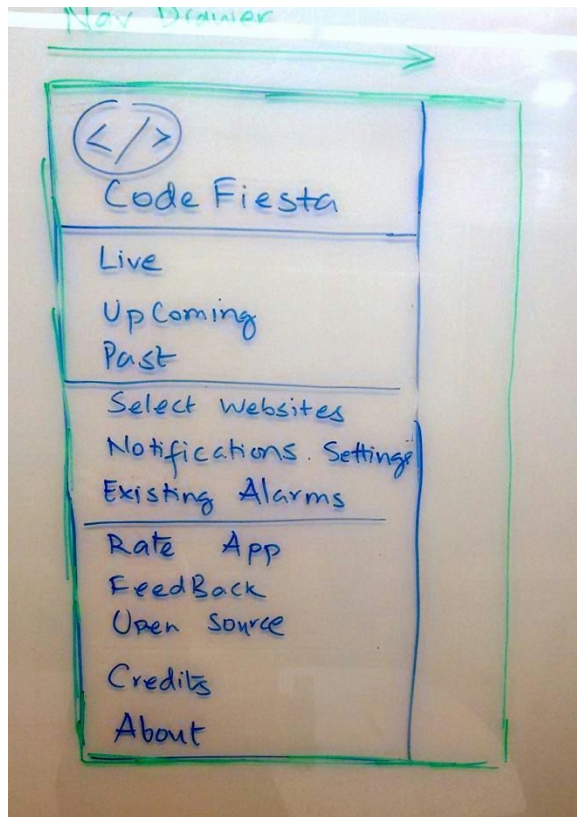 Nav Drawer
</>
Code Fiesta
Live
UpComing
Past
Select Websites
Notifications. Settings
Existing Alarms
Rate App
FeedBack
Open Source
Credits
About